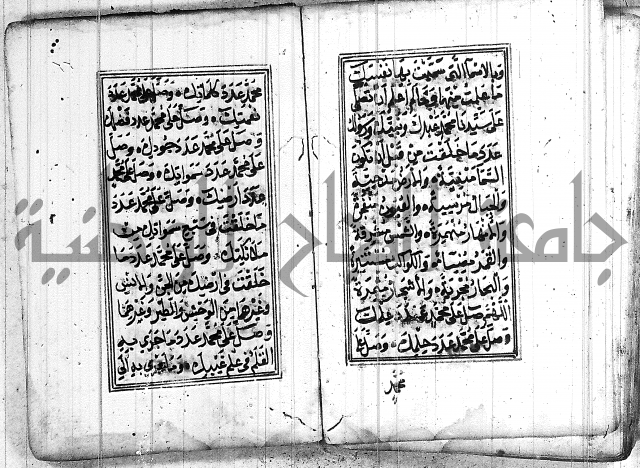 وبالاسماء التي سميت بها نفسك
ما علمت منها وما لم اعلم ان تصلي
على سيدنا محمد عبدك ونبيك ورسولك
عدد ما خلقت من قبل ان تكون
السماء مبنية والارض مدحية
والجبال مرسية والعيون منفجرة
والانهار منهمرة والشمس مشرقة
والقمر مضيئا والكواكب مستنيرة
والبحار مجرية والاشجار مثمرة
اللهم صل على محمد عدد علمك
وصل على محمد عدد حلمك وصل على
محمد
محمد عدد كلماتك وصل على محمد عدد
نعمتك وصل على محمد عدد فضلك
وصل على محمد عدد جودك وصل
على محمد عدد سمواتك وصل على محمد
عدد ارضك وصل على محمد عدد
ما خلقت في سبع سمواتك من
ملائكتك وصل على محمد عدد ما
خلقت في ارضك من الجن والانس
وغيرهما من الوحش والطير وغيرهما
وصل على محمد عدد ما جرى به
القلم في علم غيبك وما يجري به الى
جامعة النجاح الوطنية